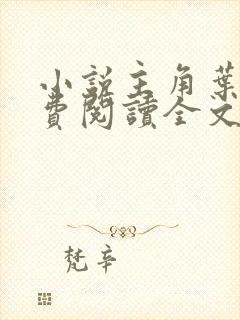 小説主角葉
費閱讀全文
梵辛